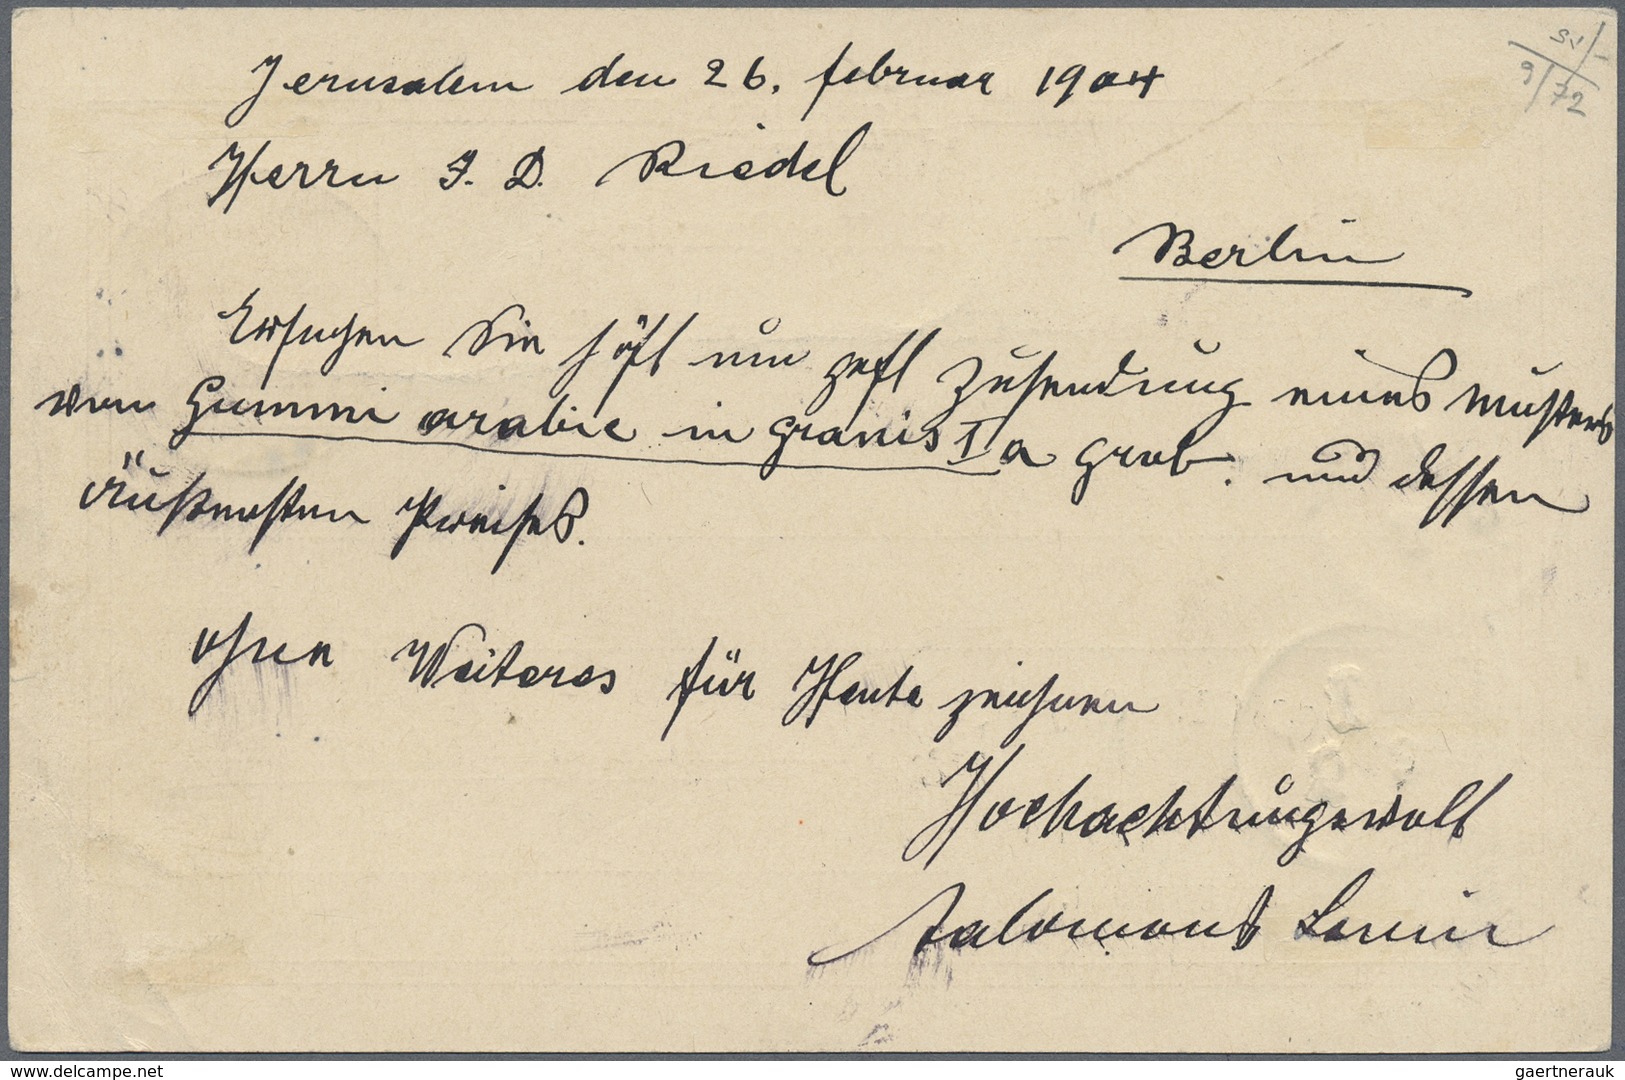 Jerusalem den 26. februar 1904
Herrn J. D. Riedel
Berlin
Ersuchen Sie höfl um gefl Zusendung eines Musters
von Gummi arabic in granis Ia grob. und dessen
äußersten Preises.
ohne Weiteres für Heute zeichnen
Hochachtungsvoll
Salomons Levin
9/72
delcampe.net
gaertnerauk